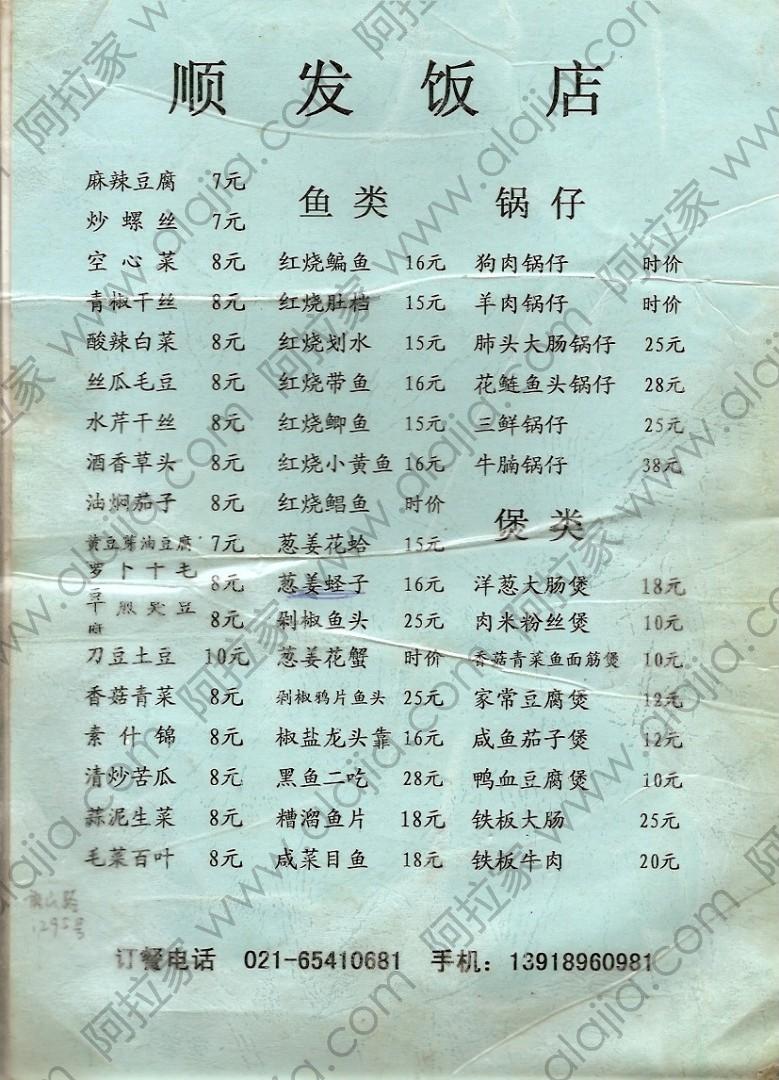 顺发饭店
麻辣豆腐 7元
炒螺丝 7元
空心菜 8元
青椒干丝 8元
酸辣白菜 8元
丝瓜毛豆 8元
水芹干丝 8元
酒香草头 8元
油焖茄子 8元
黄豆芽油豆腐 7元
萝卜干毛豆 8元
8元
刀豆土豆 10元
香菇青菜 8元
素什锦 8元
清炒苦瓜 8元
蒜泥生菜 8元
毛菜百叶 8元
鱼类
红烧鳊鱼 16元
红烧肚档 15元
红烧划水 15元
红烧带鱼 16元
红烧鲫鱼 15元
红烧小黄鱼 16元
红烧鲳鱼 时价
葱姜花蛤 15元
葱姜蛏子 16元
剁椒鱼头 25元
葱姜花蟹 时价
剁椒鸦片鱼头 25元
椒盐龙头靠 16元
黑鱼二吃 28元
糟溜鱼片 18元
咸菜目鱼 18元
锅仔
狗肉锅仔 时价
羊肉锅仔 时价
肺头大肠锅仔 25元
花鲢鱼头锅仔 28元
三鲜锅仔 25元
牛腩锅仔 38元
煲类
洋葱大肠煲 18元
肉米粉丝煲 10元
香菇青菜鱼面筋煲 10元
家常豆腐煲 12元
咸鱼茄子煲 12元
鸭血豆腐煲 10元
铁板大肠 25元
铁板牛肉 20元
1295号
订餐电话 021-65410681 手机：13918960981
阿拉家 www.alajia.com